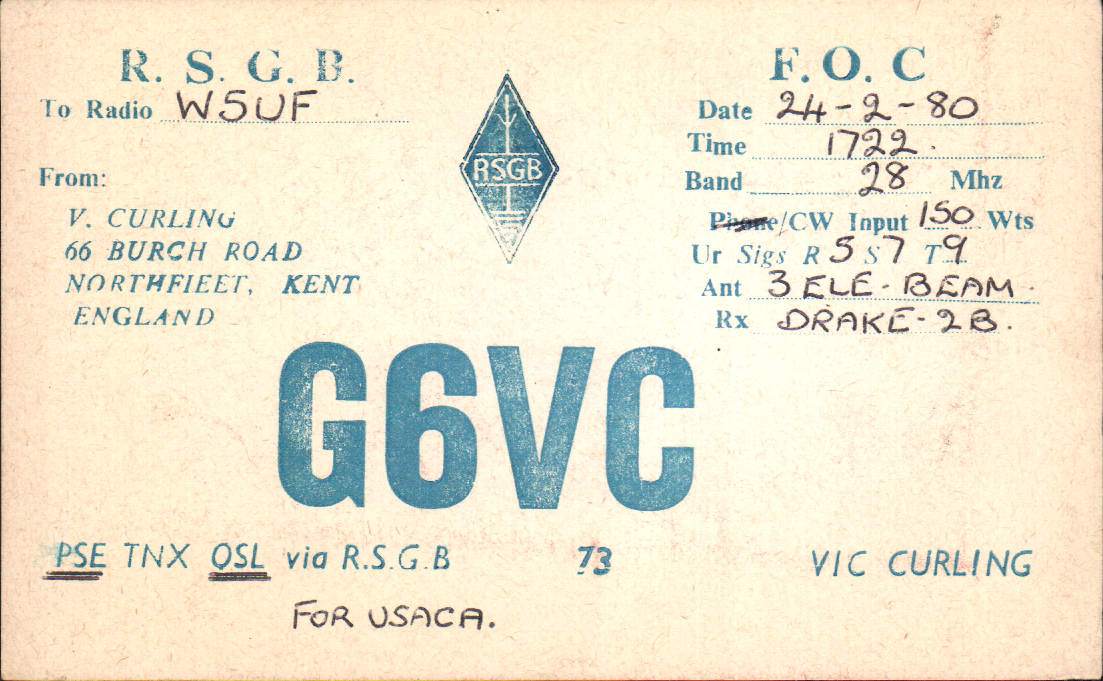 R. S. G. B.
F. O. C
To Radio W5UF
Date 24-2-80
Time 1722.
RSGB
From:
Band 28 Mhz
V. CURLING
Phone/CW Input 150 Wts
66 BURCH ROAD
Ur Sigs R 5 S 7 T 9
NORTHFIEET, KENT
Ant 3 ELE-BEAM.
ENGLAND
Rx DRAKE-2B.
G6VC
PSE TNX QSL via R.S.G.B 73 VIC CURLING
FOR USACA.